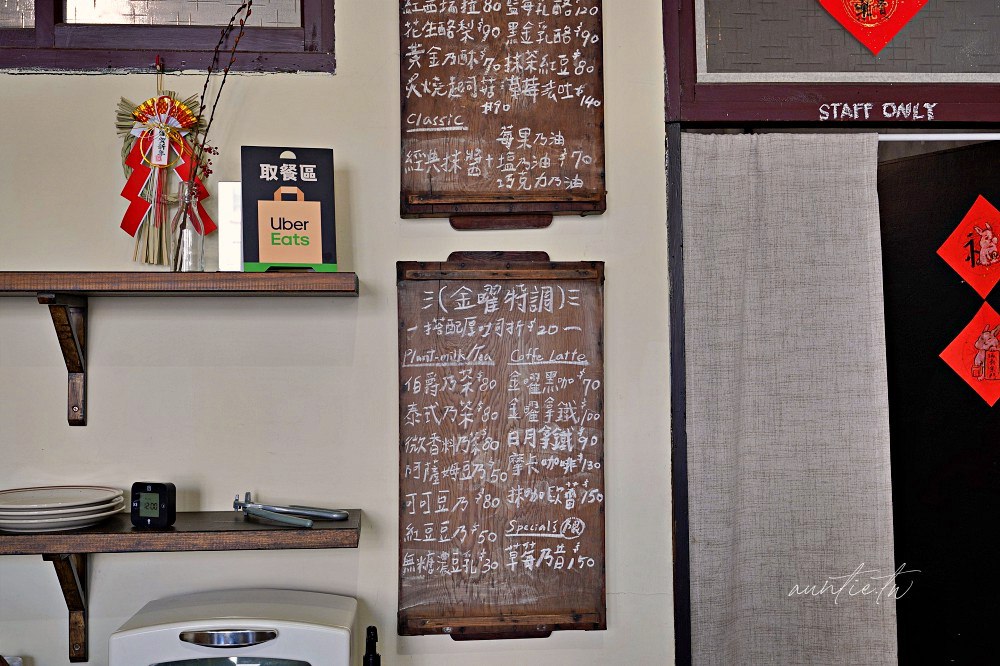 紅西瑞拉$80 藍莓乳酪$120
花生酪梨$90 黑金乳酪$90
黃金乃酥$70 抹茶紅豆$80
炙燒起司菇$90
$140
Classic
莓果乃油
經典抹醬+塩乃油$70
巧克力乃油
STAFF ONLY
取餐區
Uber
Eats
(金曜特調)
搭配厚吐司折$20
Plant-milk/Tea
伯爵乃茶$80
泰式乃茶$80
微香料乃茶$80
阿薩姆豆乃$50
可可豆乃$80
紅豆豆乃$50
無糖濃豆乳$30
Coffe Latte
金曜黑咖$70
金曜拿鐵$100
日月拿鐵$90
摩卡咖啡$130
抹咖歐蕾$150
Special's 限
草莓乃昔$150
12:00
auntie.tw